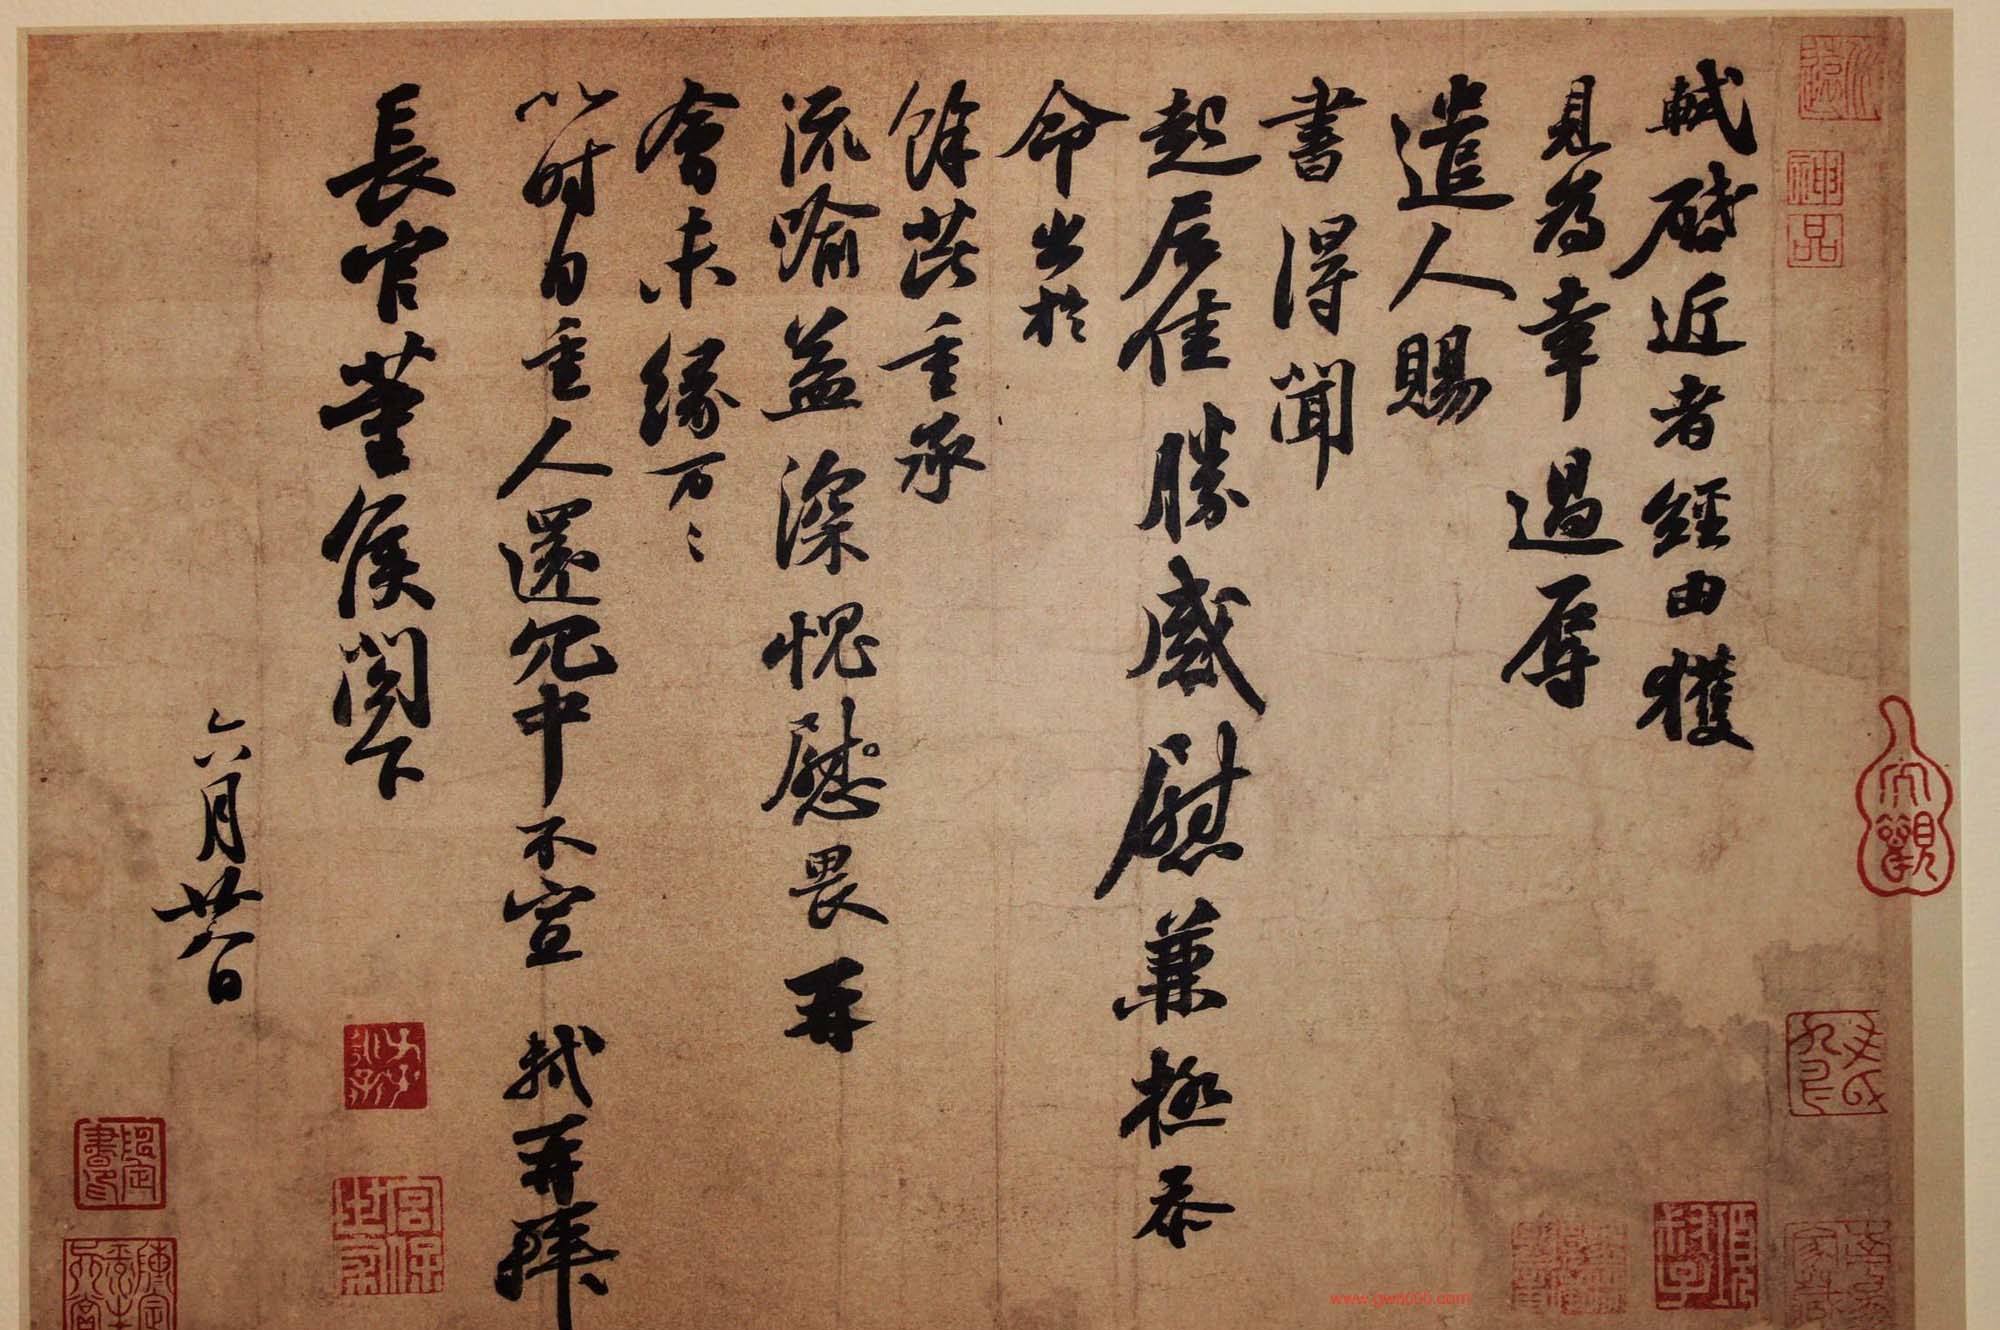 軾啓近者經由獲
見為幸過辱
遣人賜
書得聞
起居佳勝感慰兼極忝
命出於
餘芘重承
流喻益深愧慰畏再
會未緣万〻
以時自重人還冗中不宣 軾再拜
長官董侯閤下
六月廿八日
神品
大觀
www.gw8000.com